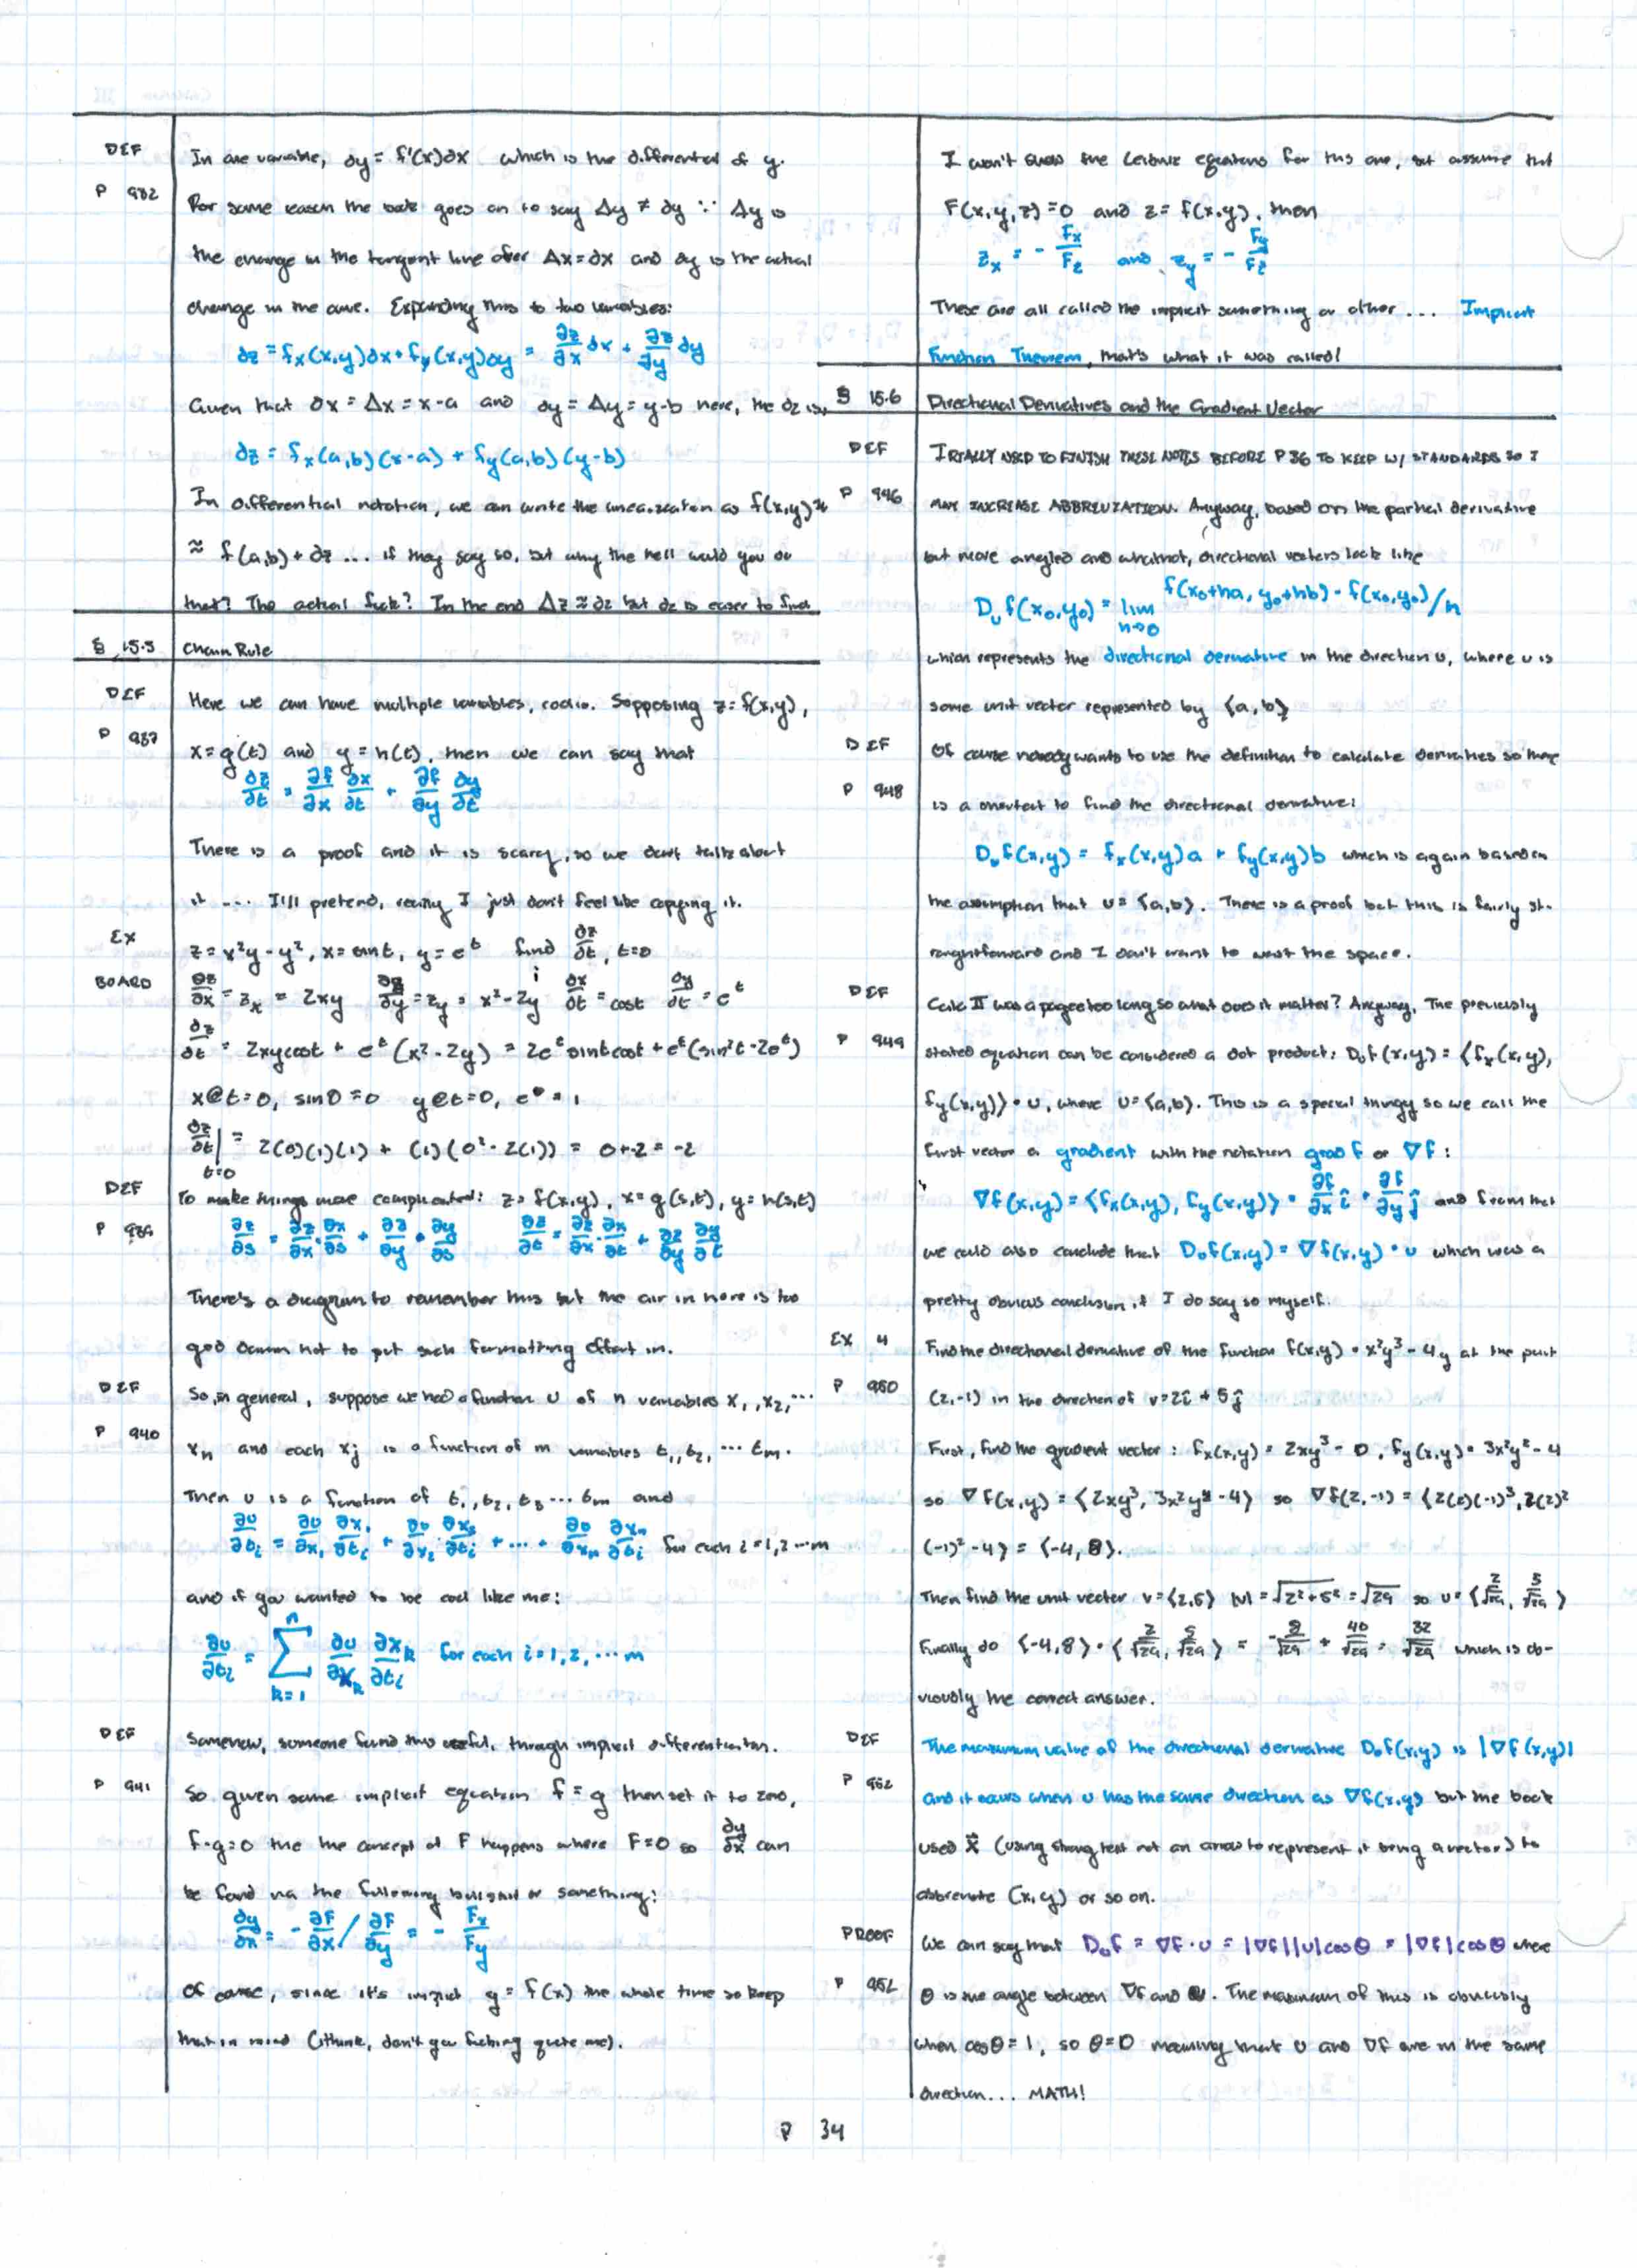 DEF
In one variable, dy = f'(x)dx which is the differential of y.
P 932
For some reason the book goes on to say Δy ≠ dy ∵ Δy is
the change in the tangent line over Δx = dx and dy is the actual
change in the curve. Expanding this to two variables:
dz = fx(x,y)dx + fy(x,y)dy = ∂z/∂x dx + ∂z/∂y dy
Given that dx = Δx = x-a and dy = Δy = y-b here, the dz is,
dz = fx(a,b)(x-a) + fy(a,b)(y-b)
In differential notation, we can write the linearization as f(x,y) ≈
≈ f(a,b) + dz ... if they say so, but why the hell would you do
that? The actual fuck? In the end Δz ≈ dz but dz is easier to find
§ 15.5 Chain Rule
DEF
Here we can have multiple variables, Supposing z = f(x,y),
P 937
x = g(t) and y = h(t), then we can say that
∂z/∂t = ∂f/∂x ∂x/∂t + ∂f/∂y ∂y/∂t
There is a proof and it is scary, so we don't talk about
it ... I'll pretend, really I just don't feel like copying it.
EX
z = x²y - y², x = sin t, y = e^t find ∂z/∂t, t=0
BOARD
∂z/∂x = zx = 2xy ∂z/∂y = zy = x² - 2y ; ∂x/∂t = cost ∂y/∂t = e^t
∂z/∂t = 2xycost + e^t(x² - 2y) = 2e^t sint cost + e^t(sin²t - 2e^t)
x@t=0, sin0 = 0 y@t=0, e⁰ = 1
∂z/∂t | t=0 = 2(0)(1)(1) + (1)(0² - 2(1)) = 0 + -2 = -2
DEF
To make things more complicated: z = f(x,y), x = g(s,t), y = h(s,t)
P 939
∂z/∂s = ∂z/∂x · ∂x/∂s + ∂z/∂y · ∂y/∂s ∂z/∂t = ∂z/∂x · ∂x/∂t + ∂z/∂y ∂y/∂t
There's a diagram to remember this but the air in here is too
god damn hot to put such formatting effort in.
DEF
So, in general, suppose we had a function u of n variables x₁, x₂, ...
P 940
xn and each xj is a function of m variables t₁, t₂, ... tm.
Then u is a function of t₁, t₂, t₃ ... tm and
∂u/∂ti = ∂u/∂x₁ ∂x₁/∂ti + ∂u/∂x₂ ∂x₂/∂ti + ... + ∂u/∂xn ∂xn/∂ti for each i = 1, 2 ... m
and if you wanted to be cool like me:
∂u/∂ti = Σ k=1 n ∂u/∂xk ∂xk/∂ti for each i = 1, 2, ... m
DEF
Somehow, someone found this useful, through implicit differentiation.
P 941
So given some implicit equation f = g then set it to zero,
f-g=0 the the concept of F happens where F=0 so ∂y/∂x can
be found via the following bullshit or something:
∂y/∂x = - ∂F/∂x / ∂F/∂y = - Fx/Fy
Of course, since it's implicit y = f(x) the whole time so keep
that in mind (i think, don't you fucking quote me).
I won't show the Leibniz equations for this one, but assume that
F(x,y,z) = 0 and z = f(x,y), then
zx = - Fx/Fz and zy = - Fy/Fz
These are all called the implicit something or other ... Implicit
Function Theorem, that's what it was called!
§ 15.6 Directional Derivatives and the Gradient Vector
DEF
I REALLY NEED TO FINISH THESE NOTES BEFORE P 36 TO KEEP W/ STANDARDS SO I
P 946
MAY INCREASE ABBREVIATION. Anyway, based on the partial derivative
but more angled and whatnot, directional vectors look like
Du f(x₀,y₀) = lim h→0 f(x₀+ha, y₀+hb) - f(x₀,y₀)/h
which represents the directional derivative in the direction u, where u is
some unit vector represented by ⟨a,b⟩
DEF
Of course nobody wants to use the definition to calculate derivatives so there
P 948
is a shortcut to find the directional derivative:
Du f(x,y) = fx(x,y)a + fy(x,y)b which is again based on
the assumption that u = ⟨a,b⟩. There is a proof but this is fairly st-
raightforward and I don't want to wast the space.
DEF
Calc II was a page too long so what does it matter? Anyway, The previously
P 949
stated equation can be considered a dot product: Du f(x,y) = ⟨fx(x,y),
fy(x,y)⟩ • u, where u = ⟨a,b⟩. This is a special thingy so we call the
first vector a gradient with the notation grad f or ∇f:
∇f(x,y) = ⟨fx(x,y), fy(x,y)⟩ = ∂f/∂x î + ∂f/∂y ĵ and from that
we could also conclude that Du f(x,y) = ∇f(x,y) • u which was a
pretty obvious conclusion if I do say so myself.
EX 4
Find the directional derivative of the function f(x,y) = x²y³ - 4y at the point
P 950
(2,-1) in the direction of v = 2î + 5ĵ
First, find the gradient vector: fx(x,y) = 2xy³ - 0, fy(x,y) = 3x²y² - 4
so ∇f(x,y) = ⟨2xy³, 3x²y² - 4⟩ so ∇f(2,-1) = ⟨2(2)(-1)³, 3(2)²
(-1)² - 4⟩ = ⟨-4, 8⟩.
Then find the unit vector v = ⟨2,5⟩ |v| = √2²+5² = √29 so u = ⟨2/√29, 5/√29⟩
Finally do ⟨-4,8⟩ • ⟨2/√29, 5/√29⟩ = -8/√29 + 40/√29 = 32/√29 which is ob-
viously the correct answer.
DEF
The maximum value of the directional derivative Du f(x,y) is |∇f(x,y)|
P 952
and it occurs when u has the same direction as ∇f(x,y) but the book
used x⃗ (using strong text not an arrow to represent it being a vector) to
abbreviate (x,y) or so on.
PROOF
We can say that Du f = ∇f · u = |∇f||u|cosθ = |∇f|cosθ where
P 952
θ is the angle between ∇f and u. The maximum of this is obviously
when cosθ = 1, so θ = 0 meaning that u and ∇f are in the same
direction... MATH!
P 34